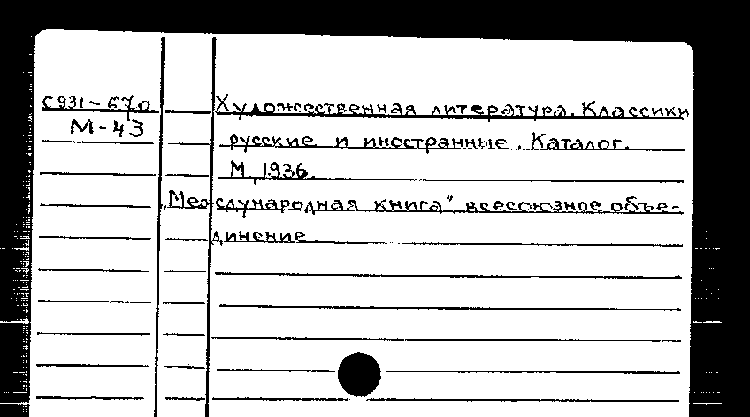 С931-670 Художественная литература. Классики
М-43 русские и иностранные. Каталог.
М, 1936.
„Международная книга" всесоюзное объе-
динение